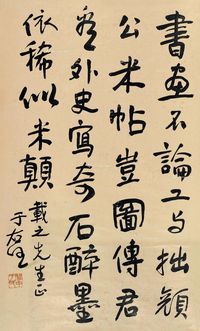 書畫不論工与拙顏
公米帖豈圖傳君
看外史寫奇石醉墨
依稀似米顛
載之先生正
于右任